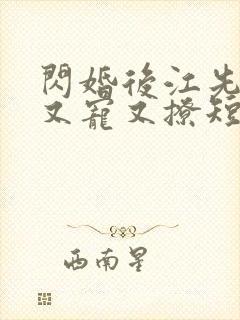 閃婚後江先
又寵又撩短
西南星